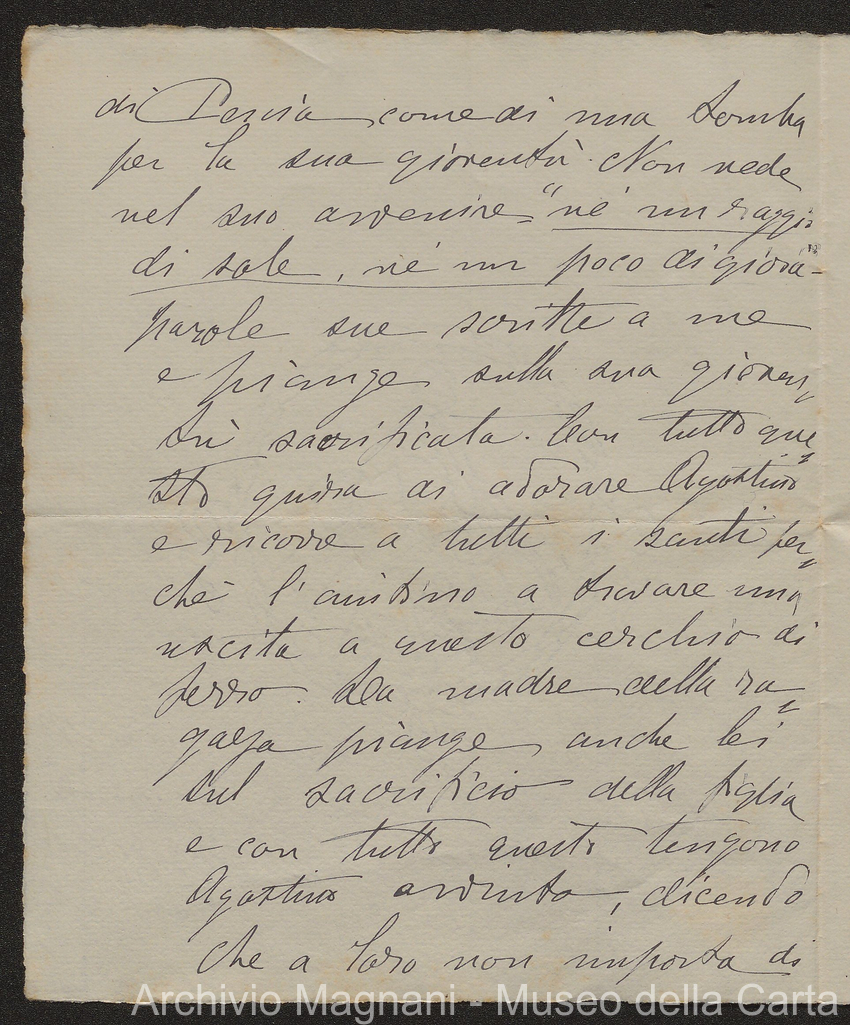 di Pescia come di una tomba
per la sua gioventù. Non vede
nel suo avvenire "né un raggio
di sole, né un poco di gioia"-
parole sue scritte a me
e piange sulla sua gioven=
tù sacrificata. Con tutto que=
sto giura di adorare Agostino
e ricorre a tutti i santi per=
chè l'aiutino a trovare una
uscita a questo cerchio di
ferro. La madre della ra=
gazza piange anche lei
sul sacrificio della figlia
e con tutto questo tengono
Agostino avvinto, dicendo
che a loro non importa di
Archivio Magnani - Museo della Carta